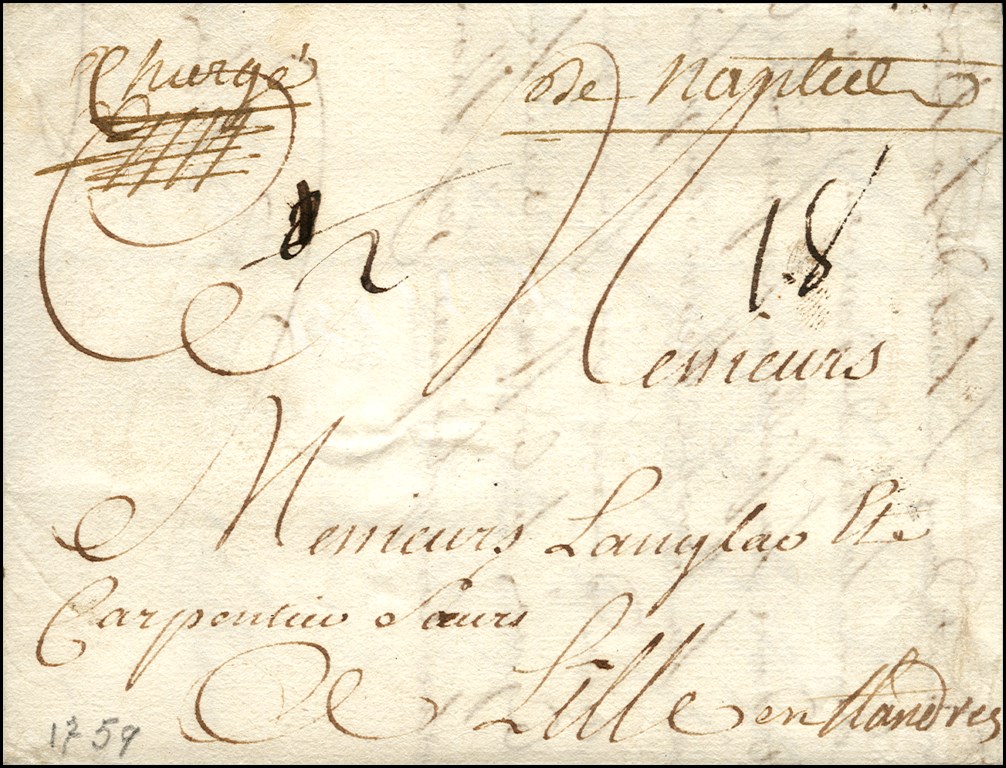 Chargé de Nanteuil
18
A Messieurs
Messieurs Langlac Et
Carpentier Sœurs
A Lille en flandres
1759